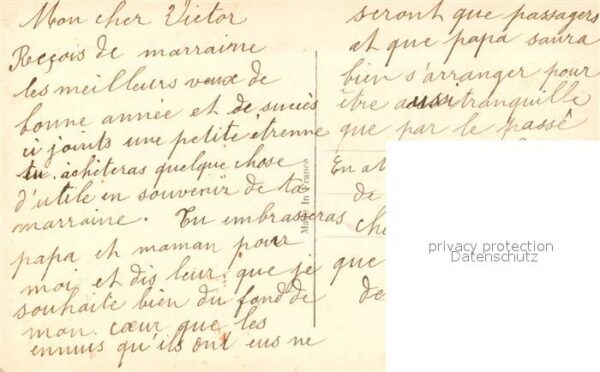 Mon cher Victor
Reçois de marraine
les meilleurs vœux de
bonne année et de succès
ci joints une petite étrenne
tu achèteras quelque chose
d'utile en souvenir de ta
marraine. Tu embrasseras
papa et maman pour
moi et dis leur que je
souhaite bien du fond de
mon cœur que les
ennuis qu'ils ont eus ne
seront que passagers
et que papa saura
bien s'arranger pour
être aussi tranquille
que par le passé
En at
de
che
que
de
Made In France
privacy protection
Datenschutz